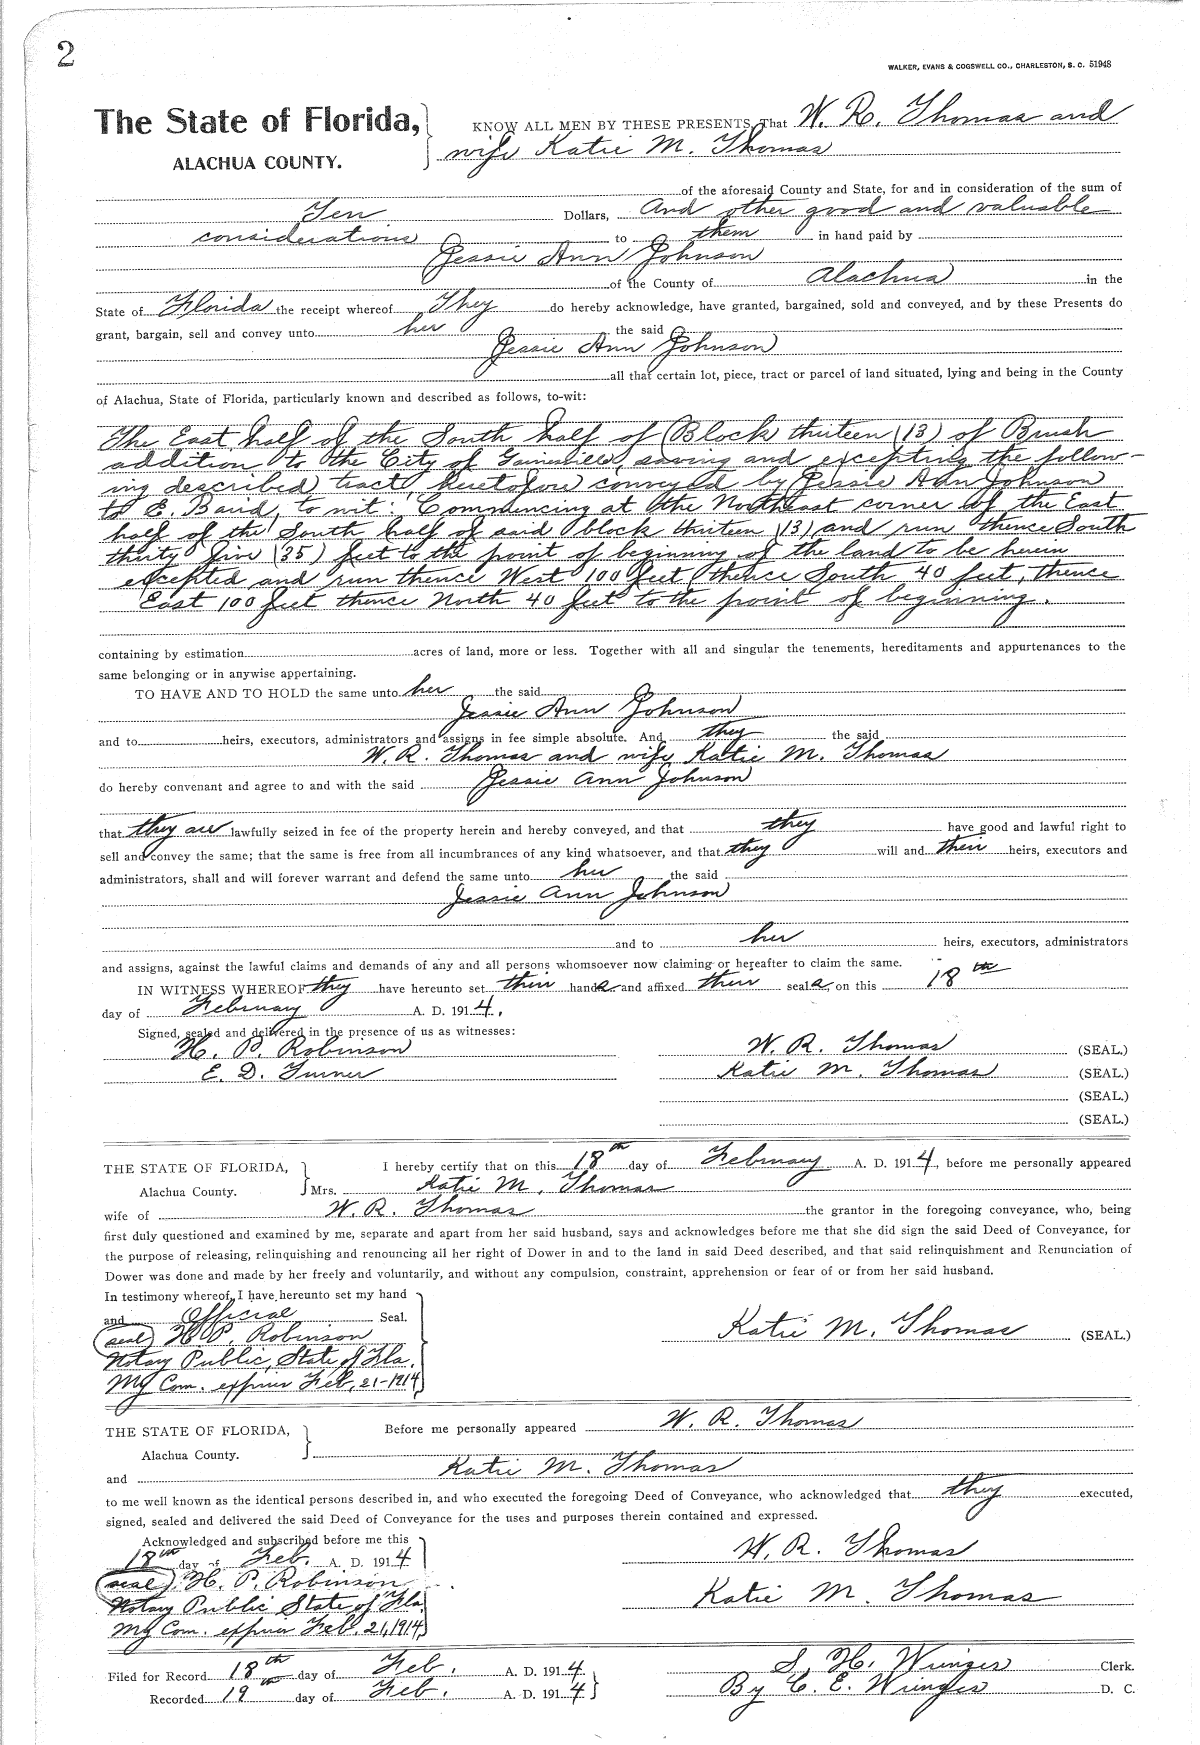 2
WALKER, EVANS & COGSWELL CO., CHARLESTON, S. C. 51948
The State of Florida,
ALACHUA COUNTY.
KNOW ALL MEN BY THESE PRESENTS, That W. R. Thomas and
wife Katie M. Thomas
of the aforesaid County and State, for and in consideration of the sum of
Ten Dollars, And other good and valuable
considerations to them in hand paid by
Jessie Ann Johnson
of the County of Alachua in the
State of Florida the receipt whereof They do hereby acknowledge, have granted, bargained, sold and conveyed, and by these Presents do
grant, bargain, sell and convey unto her the said
Jessie Ann Johnson
all that certain lot, piece, tract or parcel of land situated, lying and being in the County
of Alachua, State of Florida, particularly known and described as follows, to-wit:
The East half of the South half of Block thirteen (13) of Brush
addition to the City of Gainesville, saving and excepting the follow-
ing described tract, heretofore conveyed by Jessie Ann Johnson
to E. Baird, to wit: Commencing at the Northeast corner of the East
half of the South half of said block thirteen (13) and run thence South
thirty five (35) feet to the point of beginning of the land to be herein
excepted, and run thence West 100 feet, thence South 40 feet, thence
East 100 feet thence North 40 feet to the point of beginning.
containing by estimation acres of land, more or less. Together with all and singular the tenements, hereditaments and appurtenances to the
same belonging or in anywise appertaining.
TO HAVE AND TO HOLD the same unto her the said
Jessie Ann Johnson
and to heirs, executors, administrators and assigns in fee simple absolute. And they the said
W. R. Thomas and wife Katie M. Thomas
do hereby convenant and agree to and with the said Jessie Ann Johnson
that they are lawfully seized in fee of the property herein and hereby conveyed, and that they have good and lawful right to
sell and convey the same; that the same is free from all incumbrances of any kind whatsoever, and that they will and their heirs, executors and
administrators, shall and will forever warrant and defend the same unto her the said
Jessie Ann Johnson
and to her heirs, executors, administrators
and assigns, against the lawful claims and demands of any and all persons whomsoever now claiming or hereafter to claim the same.
IN WITNESS WHEREOF they have hereunto set their hands and affixed their seals, on this 18th
day of February A. D. 1914.
Signed, sealed and delivered in the presence of us as witnesses:
H. P. Robinson W. R. Thomas (SEAL.)
E. D. Turner Katie M. Thomas (SEAL.)
(SEAL.)
(SEAL.)
THE STATE OF FLORIDA, I hereby certify that on this 18th day of February A. D. 1914, before me personally appeared
Alachua County. Mrs. Katie M. Thomas
wife of W. R. Thomas the grantor in the foregoing conveyance, who, being
first duly questioned and examined by me, separate and apart from her said husband, says and acknowledges before me that she did sign the said Deed of Conveyance, for
the purpose of releasing, relinquishing and renouncing all her right of Dower in and to the land in said Deed described, and that said relinquishment and Renunciation of
Dower was done and made by her freely and voluntarily, and without any compulsion, constraint, apprehension or fear of or from her said husband.
In testimony whereof, I have hereunto set my hand
and Official Seal.
(seal) H. P. Robinson Katie M. Thomas (SEAL.)
Notary Public, State of Fla.
My Com. expires Feb. 21-1914
THE STATE OF FLORIDA, Before me personally appeared W. R. Thomas
Alachua County.
and Katie M. Thomas
to me well known as the identical persons described in, and who executed the foregoing Deed of Conveyance, who acknowledged that they executed,
signed, sealed and delivered the said Deed of Conveyance for the uses and purposes therein contained and expressed.
Acknowledged and subscribed before me this
18th day of Feb. A. D. 1914 W. R. Thomas
(seal) H. P. Robinson Katie M. Thomas
Notary Public State of Fla.
My Com. expires Feb. 21, 1914
Filed for Record 18th day of Feb. A. D. 1914. S. H. Wienges Clerk.
Recorded 19th day of Feb. A. D. 1914 By C. E. Wienges D. C.